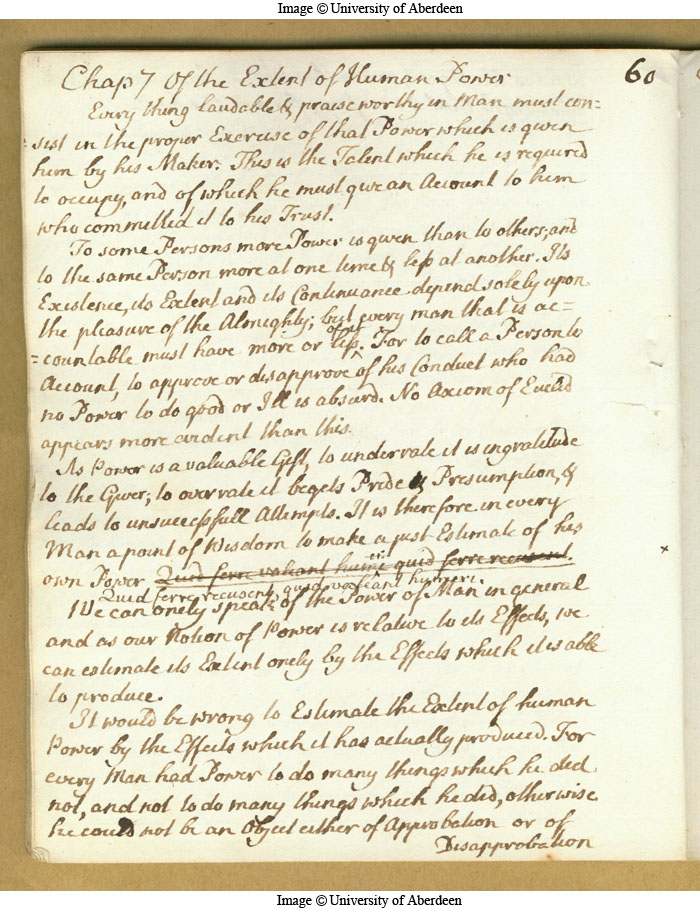 Image © University of Aberdeen
60
Chap 7 Of the Extent of Human Power
Every thing laudable & praise worthy in Man must con=
=sist in the proper Exercise of that Power which is given
him by his Maker. This is the Talent which he is required
to occupy, and of which he must give an Account to him
who committed it to his Trust.
To some Persons more Power is given than to others, and
to the same Person more at one time & less at another. Its
Existence, its Extent and its Continuance depend solely upon
the pleasure of the Almighty; but every man that is ac=
=countable must have more or less of it. For to call a Person to
Account, to approve or disapprove of his Conduct who had
no Power to do good or Ill is absurd. No Axiom of Euclid
appears more evident than this.
As Power is a valuable Gift, to undervale it is ingratitude
to the Giver; to overvale it begets Pride & Presumption, &
leads to unsuccessfull Attempts. It is therefore in every
Man a point of Wisdom to make a just Estimate of his
own Power Quid ferre valeant humeri quid ferre recusent.
Quid ferre recusent, quid valeant humeri.
We can onely speak of the Power of Man in general
and as our Notion of Power is relative to its Effects, we
can estimate its Extent onely by the Effects which it is able
to produce.
It would be wrong to Estimate the Extent of human
Power by the Effects which it has actually produced. For
every Man had Power to do many things which he did
not, and not to do many things which he did, otherwise
he could not be an Object either of Approbation or of
Disapprobation
Image © University of Aberdeen